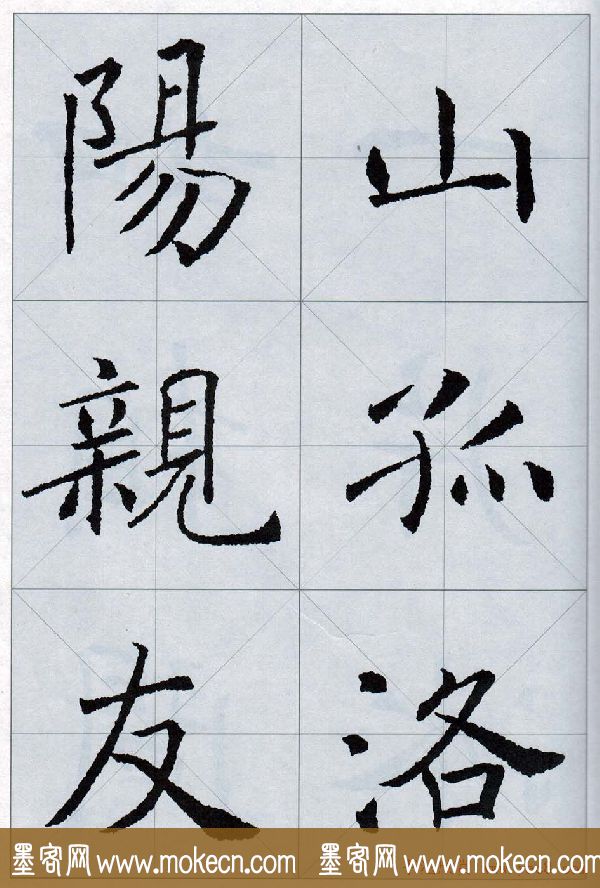 山孤洛
陽親友
墨客网 www.mokecn.com 墨客网 www.mokecn.com